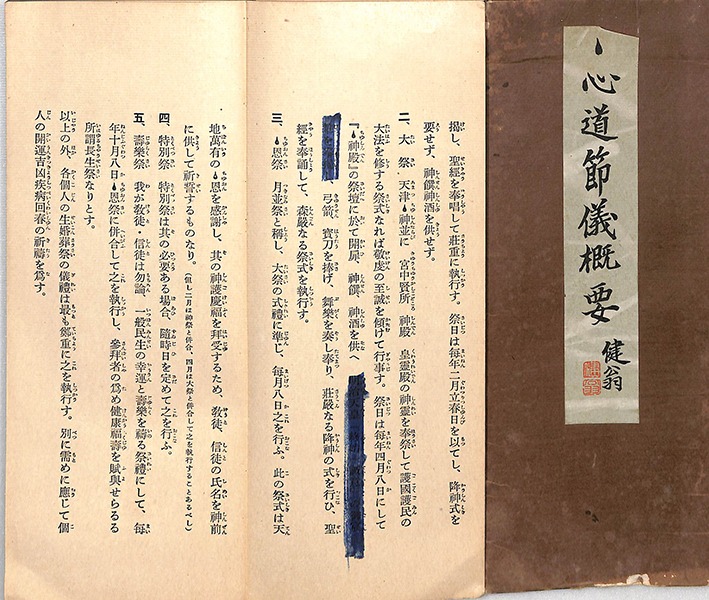 心道節儀概要
健翁
揭し、聖經を奉唱して莊重に執行す。祭日は每年二月立春日を以てし、降神式を
要せず、神饌神酒を供せず。
二、大祭 天津神並に 宮中賢所 神殿 皇靈殿の神靈を奉祭して護國護民の
大法を修する祭式なれば敬虔の至誠を傾けて行事す。祭日は每年四月八日にして
『神殿』の祭壇に於て開扉、神饌、神酒を供へ
弓箭、寶刀を捧げ、舞樂を奏し奉り、莊嚴なる降神の式を行ひ、聖
經を奉誦して、森嚴なる祭式を執行す。
三、恩祭 月並祭と稱し、大祭の式禮に準じ、每月八日に之を行ふ。此の祭式は天
地萬有の恩を感謝し、其の神護慶福を拜受するため、敎徒、信徒の氏名を神前
に供して祈誓するものなり。(但し二月は神祭と併合、四月は大祭と併合して之を執行することあるべし)
四、特別祭 特別祭は其の必要ある場合、隨時日を定めて之を行ふ。
五、壽樂祭 我が敎徒、信徒は勿論、一般民生の幸運と壽樂を禱る祭禮にして、每
年十月八日恩祭に併合して之を執行し、參拜者の爲め健康福壽を賦與せらるる
所謂長生祭なりとす。
以上の外、各個人の生婚葬祭の儀禮は最も鄭重に之を執行す。別に需めに應じて個
人の開運吉凶疾病回春の祈禱を爲す。